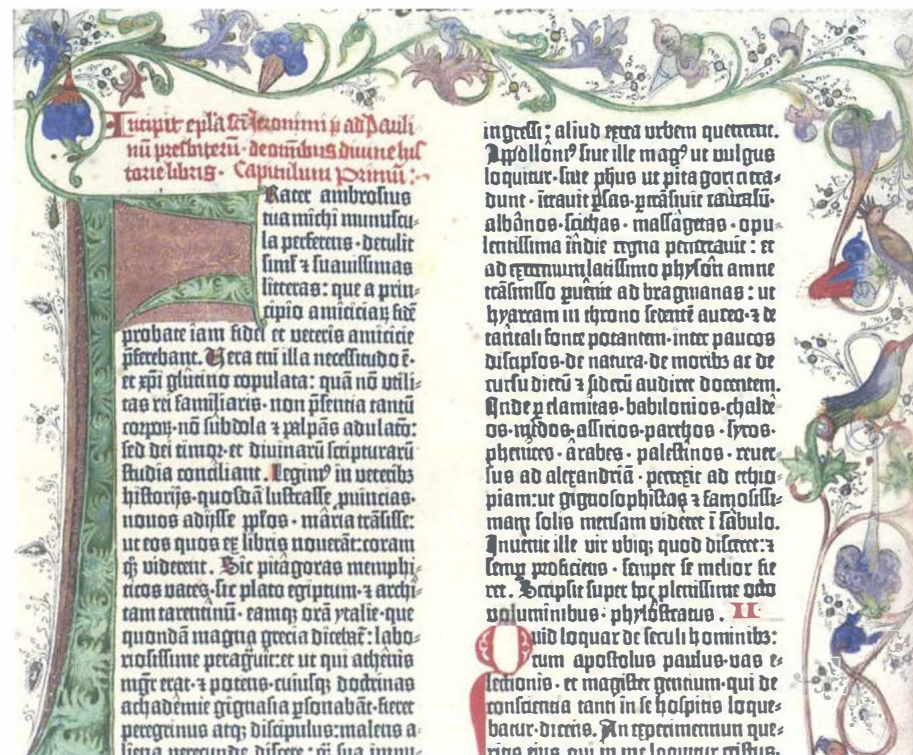 Incipit epl̃a sc̃i Jeronimi p̃ ad Pauli
nū presbiterū · de om̄ibus divine his
torie libris · Capitulum Primū :
Rater ambrosius
tua michi munuscu-
la perferens · detulit
simĺ ⁊ suavissimas
litteras : que a prin-
cipio amiciciaꝝ fidē
probate iam fidei et veteris amicicie
p̃ferebant. Vera em̄ illa necessitudo ē ·
et xp̄i glutino copulata : quā nō utili-
tas rei familiaris · non p̃sentia tantū
corpoꝝ · nō subdola ⁊ palpās adulac̄o :
sed dei timor · et divinarū scripturarū
studia conciliant . Legimꝰ in veteribꝫ
historijs · quosdā lustrasse ꝓuincias ·
novos adijsse pp̄los · maria trāsisse :
ut eos quos ex libris noverāt : coram
qꝫ viderent . Sic pitagoras memphi-
ticos vates · sic plato egiptum · ⁊ archi-
tam tarentinū · eamqꝫ orā ytalie · que
quondā magna grecia dicebat̃ : labo-
riosissime peragr̃uit : et ut qui athenis
mgr̃ erat · ⁊ potens · cuiusqꝫ doctrinas
achademie gignasia ꝑsonabāt · fieret
peregrinus atqꝫ discipulus : malens a-
liena verecunde discere : qꝫ sua impu-
ingressi : aliud extra urbem quererent.
Apollonꝰ siue ille magꝰ ut vulgus
loquitur · siue ph̄us ut pitagorici tra-
dunt · itrauit p̃sas · pt̃rāsiuit caucasū ·
albanos · scithas · massagetas · opu-
lentissima indie regna penetrauit : et
ad extremum latissimo physon amne
trāsmisso ꝑuenit ad bragmanas : ut
hyarcam in throno sedentē aureo · ⁊ de
tantali fonte potantem · inter paucos
discip̄los · de natura · de moribꝫ ac de
cursu dierū ⁊ siderū audiret docentem.
Inde ꝑ elamitas · babilonios · chalde
os · medos · assirios · parthos · syros ·
phenices · arabes · palestinos · reuer-
sus ad alexandriā · perrexit ad ethio-
piam : ut gignosophistas ⁊ famosissi-
mam solis mensam videret ī sabulo.
Inuenit ille vir ubiqꝫ quod disceret : ⁊
semꝑ proficiens · semper se melior fie
ret . Scripsit super hoc plenissime octo
voluminibus · phylostratus . II
uid loquar de seculi hominibꝫ :
cum apostolus paulus · vas e-
lectionis · et magister gentium · qui de
conscientia tanti in se hospitis loque-
batur · dicens. An experimentum que-
ritis eius qui in me loquitur cristus.